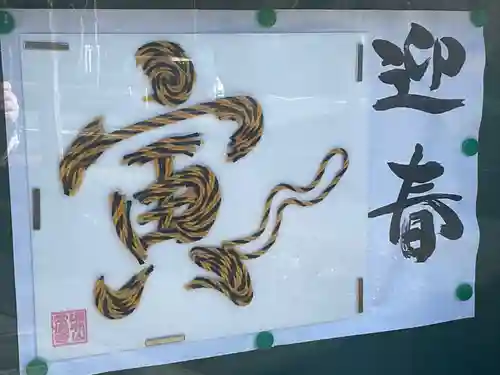 迎春
寅